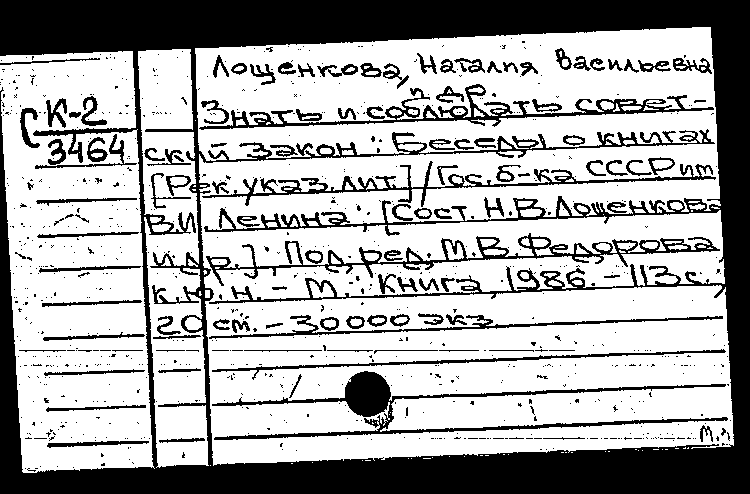 Лощенкова, Наталия Васильевна
и др.
К-2
3464
Знать и соблюдать совет-
ский закон : Беседы о книгах
[Рек. указ. лит.] / Гос. б-ка СССР им
В.И. Ленина ; [Сост. Н.В. Лощенкова
и др.] ; Под ред. М.В. Федорова,
к.ю.н. - М. : Книга, 1986. - 113 с. ;
20 см. - 30000 экз